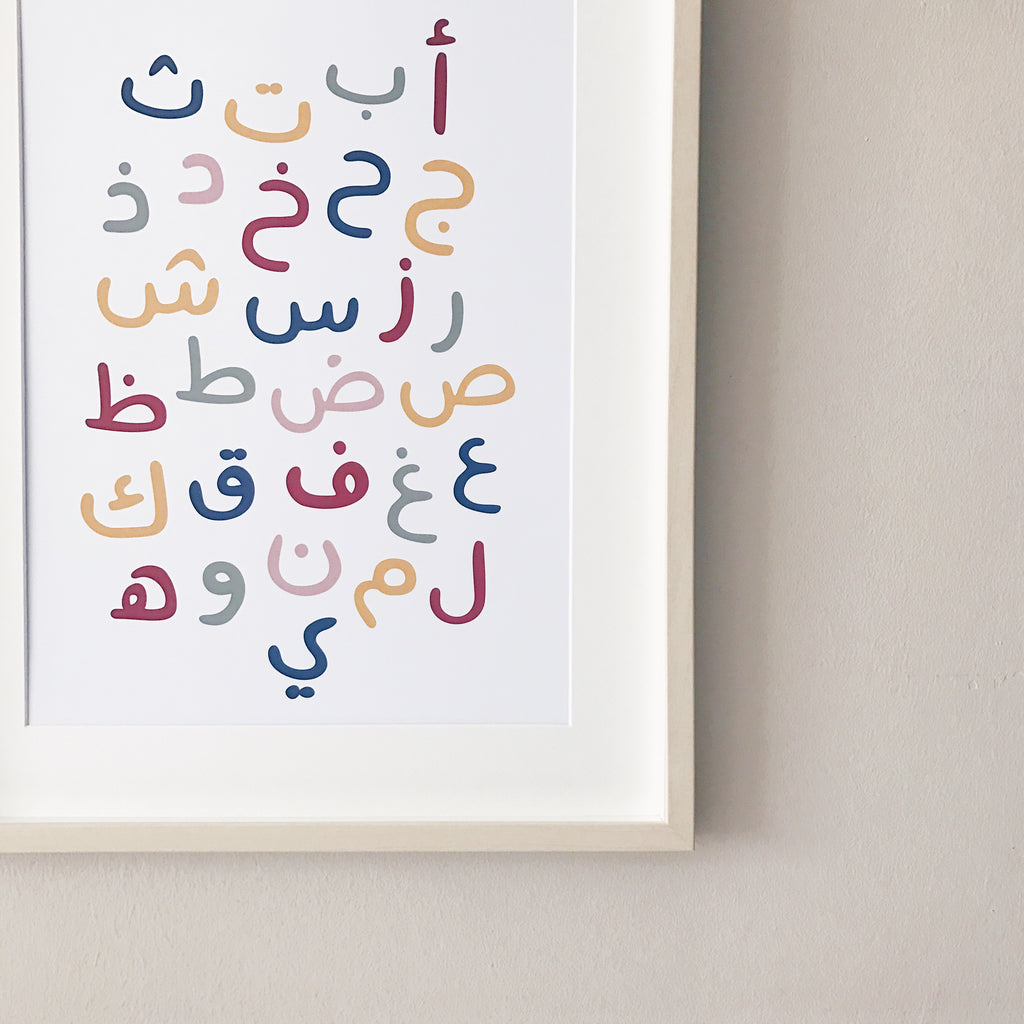 أ ب ت ث
ج ح خ د ذ
ر ز س ش
ص ض ط ظ
ع غ ف ق ك
ل م ن و ه
ي